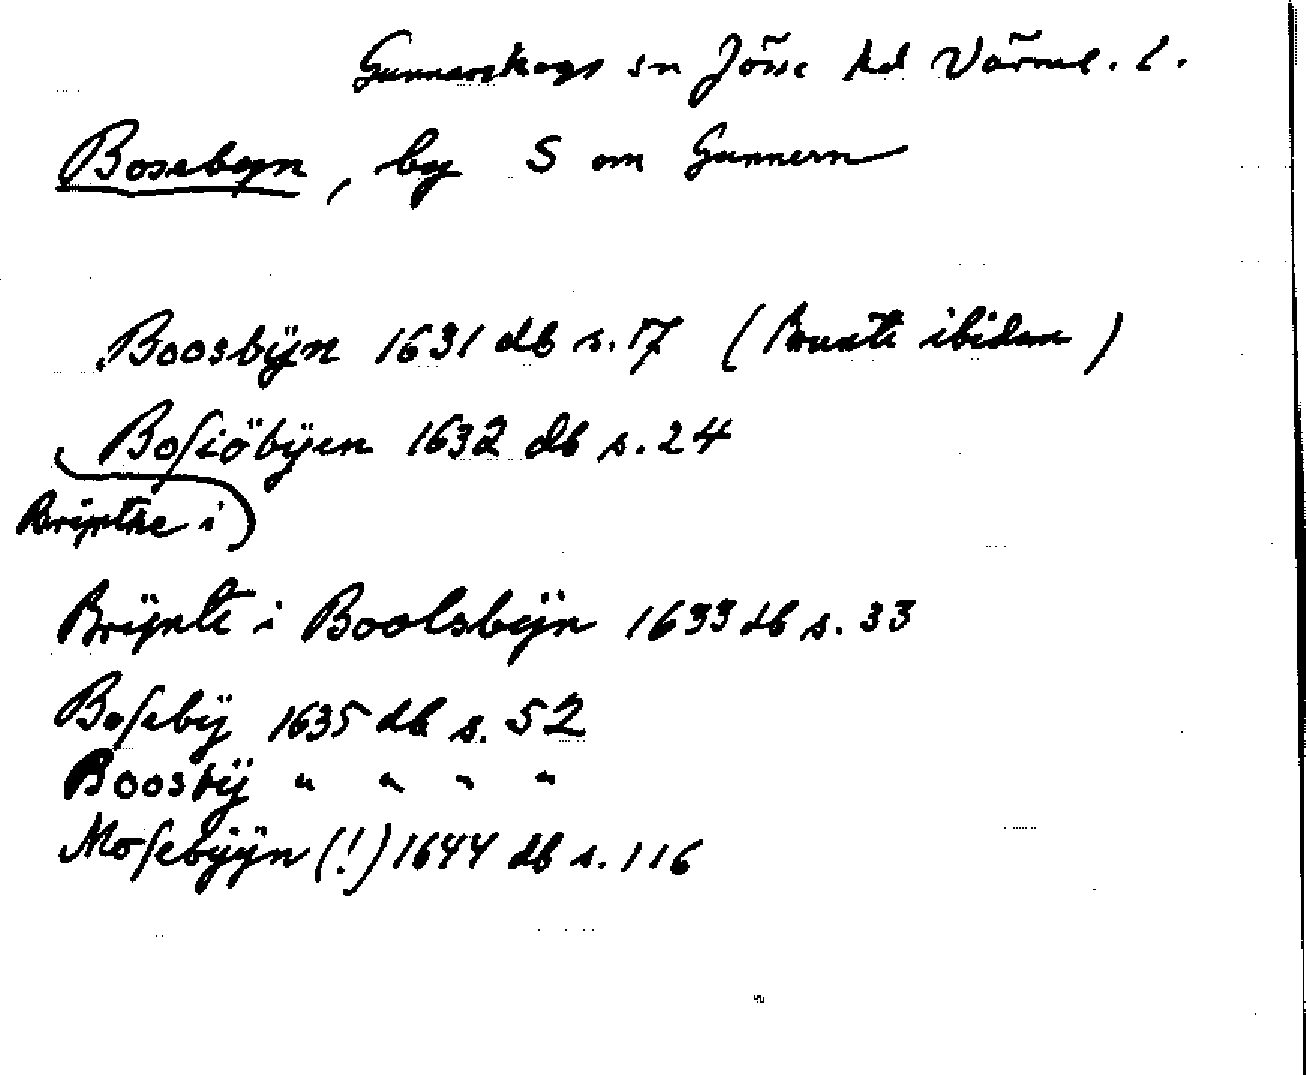 Gunnarskogs sn Jösse hd Värml. l.
Bosebyn, by S om Gunnern
Boosbÿn 1631 db s. 17 (Brunte ibidem)
Boſiöbÿen 1632 db s. 24
Brÿnthe i
Brÿnte i Boolsbÿn 1633 db s. 33
Boſebÿ 1635 db s. 52
Boosbÿ " " " "
Moſebÿÿn (!) 1644 db s. 116